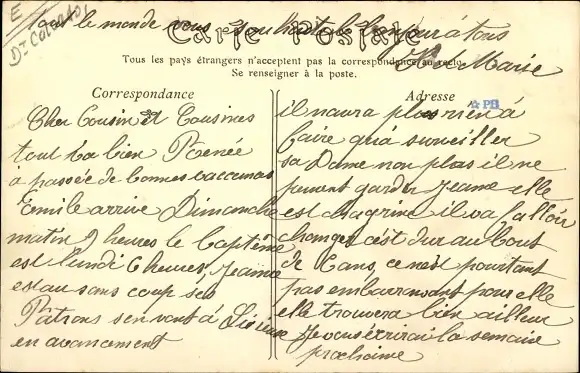 E
Dr COLORADI
Tout le monde vous souhaite le bonjour à tous
Carte Postale
Tous les pays étrangers n'acceptent pas la correspondance au recto.
Se renseigner à la poste.
Marie
Correspondance
Cher Cousin et Cousines
tout va bien Renée
à passée de bonnes vaccences
Emile arrive Dimanche
matin 9 heures le Capitène
est lundi 6 heures, Jeanne
est au sans coup ses
Patrons sen vont à Lisieux
en avancement
Adresse
☆ PB
il naura plus rien à
faire qua surveiller
sa Dame non plus il ne
peuvent garder Jeanne elle
est chagrine il va falloir
changer c'est dur au bout
de 6 ans, ce nest pourtant
pas embarrassant pour elle
elle trouvera bien ailleur
Je vous écrirai la semaine
prochaine